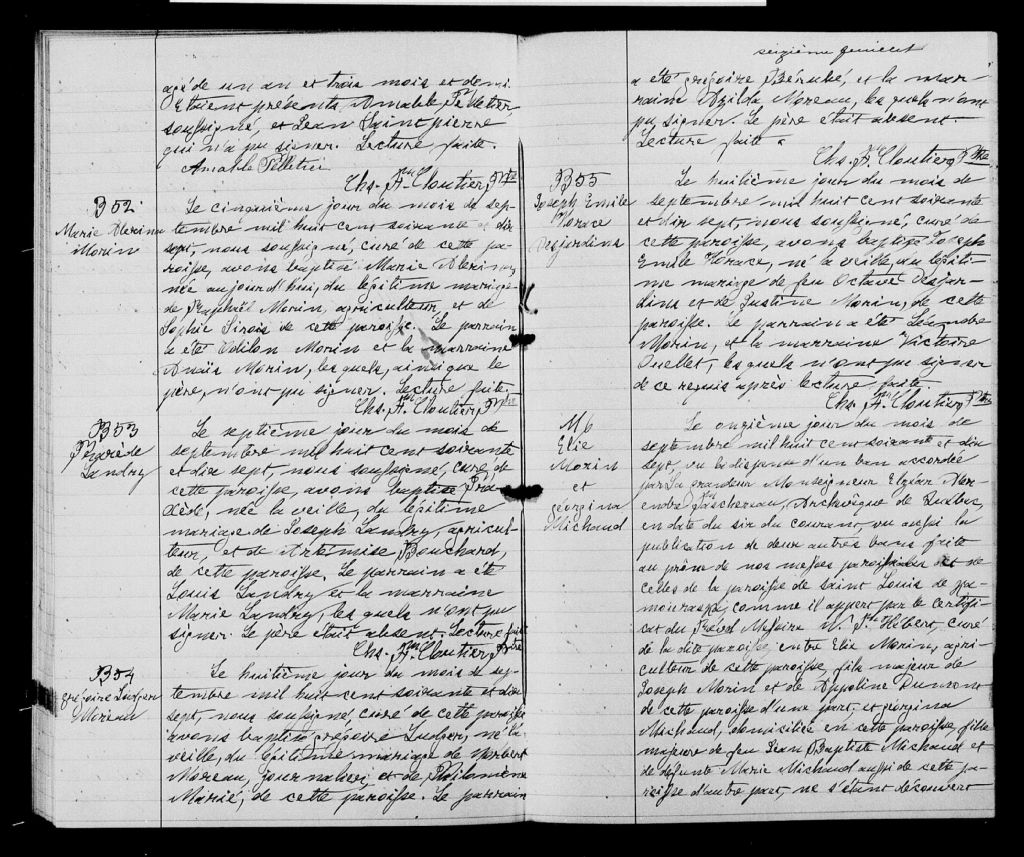 agé de un an et trois mois et demi.
Etaient présents Amable Pelletier,
soussigné, et Jean Saint pierre
qui n'a pu signer. Lecture faite.
Amable Pelletier
Chs. Frs Cloutier, Ptre
B 52
Marie Alerina
Morin
Le cinquième jour du mois de sep-
tembre mil huit cent soixante et dix
sept, nous soussigné, curé de cette pa-
roisse, avons baptisé Marie Alerina,
née aujourd'hui, du légitime mariage
de Raphaël Morin, agriculteur et de
Sophie Sirois de cette paroisse. Le parrain
a été Odilon Morin et la marraine
Anaïs Morin, lesquels, ainsi que le
père, n'ont pu signer. Lecture faite.
Chs. Frs Cloutier, Ptre
B53
Praxède
Landry
Le septième jour du mois de
septembre mil huit cent soixante
et dix sept, nous soussigné, curé, de
cette paroisse, avons baptisé Pra-
xède, née la veille, du légitime
mariage de Joseph Landry, agricul-
teur, et de Artémise Bouchard,
de cette paroisse. Le parrain a été
Louis Landry et la marraine
Marie Landry, lesquels n'ont pu
signer. Le père était absent. Lecture faite
Chs. Frs Cloutier, Ptre
B54
Grégoire Ludger
Moreau
Le huitième jour du mois de sep-
tembre mil huit cent soixante et dix
sept, nous soussigné, curé de cette paroisse
avons baptisé Grégoire Ludger, né la
veille, du légitime mariage de Norbert
Moreau, journalier et de Philomène
Marié, de cette paroisse. Le parrain
seizième feuillet
a été Grégoire Bérubé, et la mar-
raine Azilda Moreau, lesquels n'ont
pu signer. Le père était absent.
Lecture faite
Chs. Frs Cloutier, Ptre
B55
Joseph Emile
Horace
Desjardins
Le huitième jour du mois de
septembre mil huit cent soixante
et dix sept, nous soussigné, curé de
cette paroisse, avons baptisé Joseph
Emile Horace, né la veille, du légiti-
me mariage de feu Octave Desjar-
dins et de Justine Morin, de cette
paroisse. Le parrain a été Léandre
Morin, et la marraine Victoire
Ouellet, lesquels n'ont pu signer
de ce requis après lecture faite.
Chs. Frs Cloutier, Ptre
M6
Elie
Morin
et
Géorgina
Michaud
Le onzième jour du mois de
septembre mil huit cent soixante et dix
sept, vu la dispense d'un ban accordée
par Sa grandeur Monseigneur Elzéar Alex-
andre Taschereau, Archevêque de Québec,
en date du six du courant, vu aussi la
publication de deux autres bans faite
au prône de nos messes paroissiales et de
celles de la paroisse de Saint Louis de Ka-
mouraska, comme il appert par le certifi-
cat du Révd Messire N. Hébert, curé
de la dite paroisse, entre Elie Morin, agri-
culteur de cette paroisse, fils majeur de
Joseph Morin et de Appoline Dumont
de cette paroisse d'une part, et Georgina
Michaud, domiciliée en cette paroisse, fille
majeure de feu Jean Baptiste Michaud et
de défunte Marie Michaud aussi de cette pa-
roisse d'autre part, ne s'étant découvert